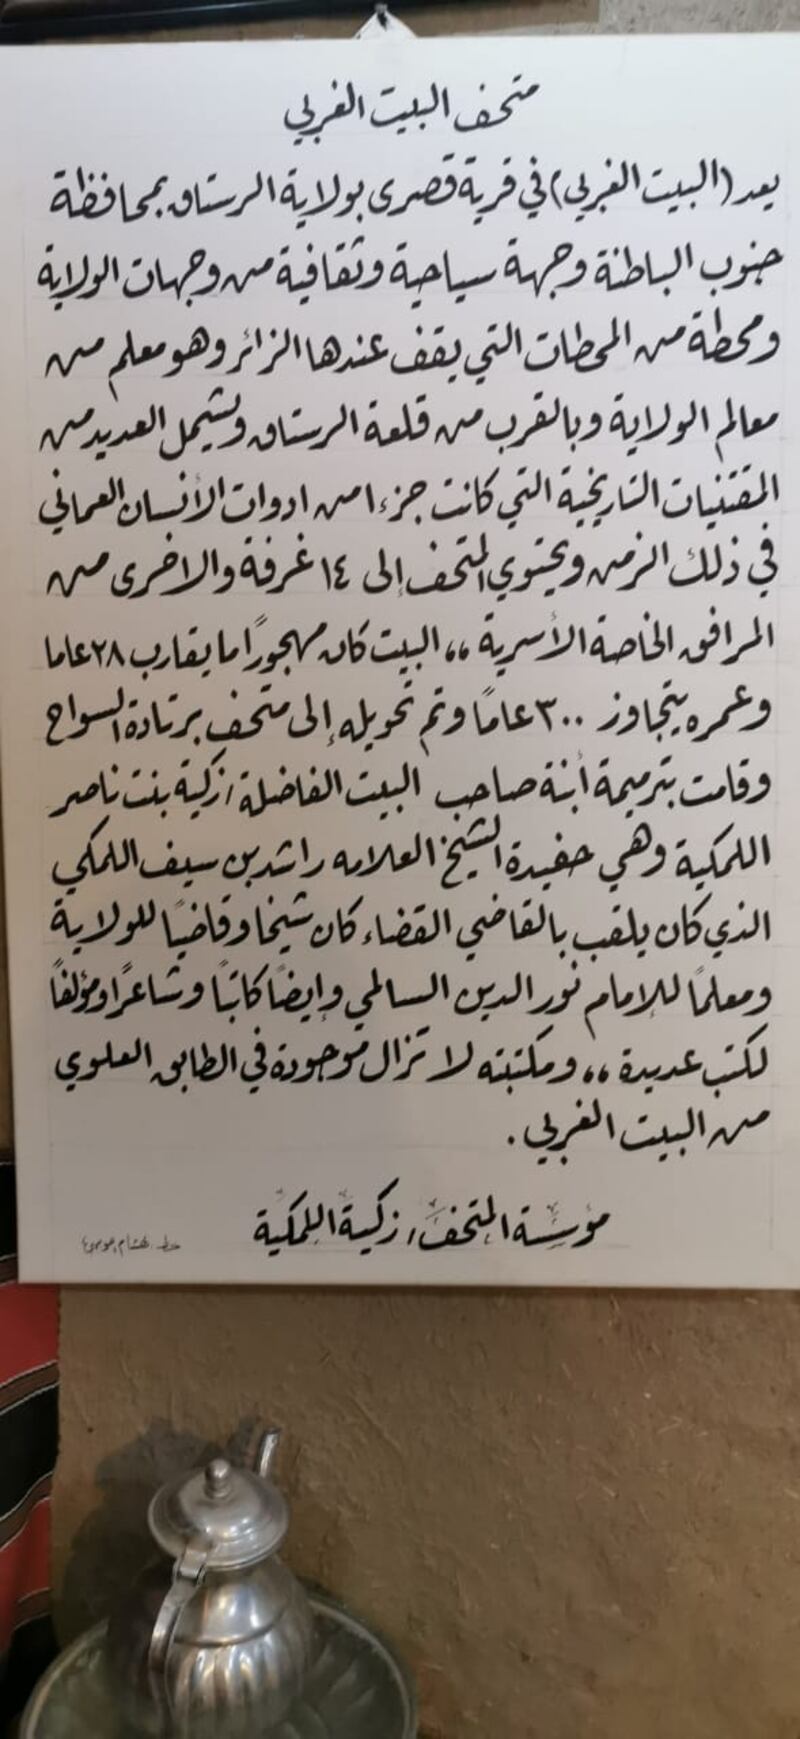 متحف البيت الغربي
يعد (البيت الغربي) في قرية قصرى بولاية الرستاق بمحافظة
جنوب الباطنة وجهة سياحية وثقافية من وجهات الولاية
ومحطة من المحطات التي يقف عندها الزائر وهو معلم من
معالم الولاية وبالقرب من قلعة الرستاق ويشمل العديد من
المقتنيات التاريخية التي كانت جزءا من ادوات الأنسان العماني
في ذلك الزمن ويحتوي المتحف إلى ١٤ غرفة والاخرى من
المرافق الخاصة الأسرية ،، البيت كان مهجورًا ما يقارب ٢٨ عاما
وعمره يتجاوز ٣٠٠ عامًا وتم تحويله إلى متحف يرتادة السواح
وقامت بترميمة أبنة صاحب البيت الفاضلة / زكية بنت ناصر
اللمكية وهي حفيدة الشيخ العلامه راشد بن سيف اللمكي
الذي كان يلقب بالقاضي القضاء كان شيخا وقاضيًا للولاية
ومعلمًا للإمام نور الدين السالمي وإيضًا كاتبًا وشاعرًا ومؤلفًا
لكتب عديدة ،، ومكتبته لا تزال موجودة في الطابق العلوي
من البيت الغربي .
مؤسِّسة المتحف / زكية اللمكية